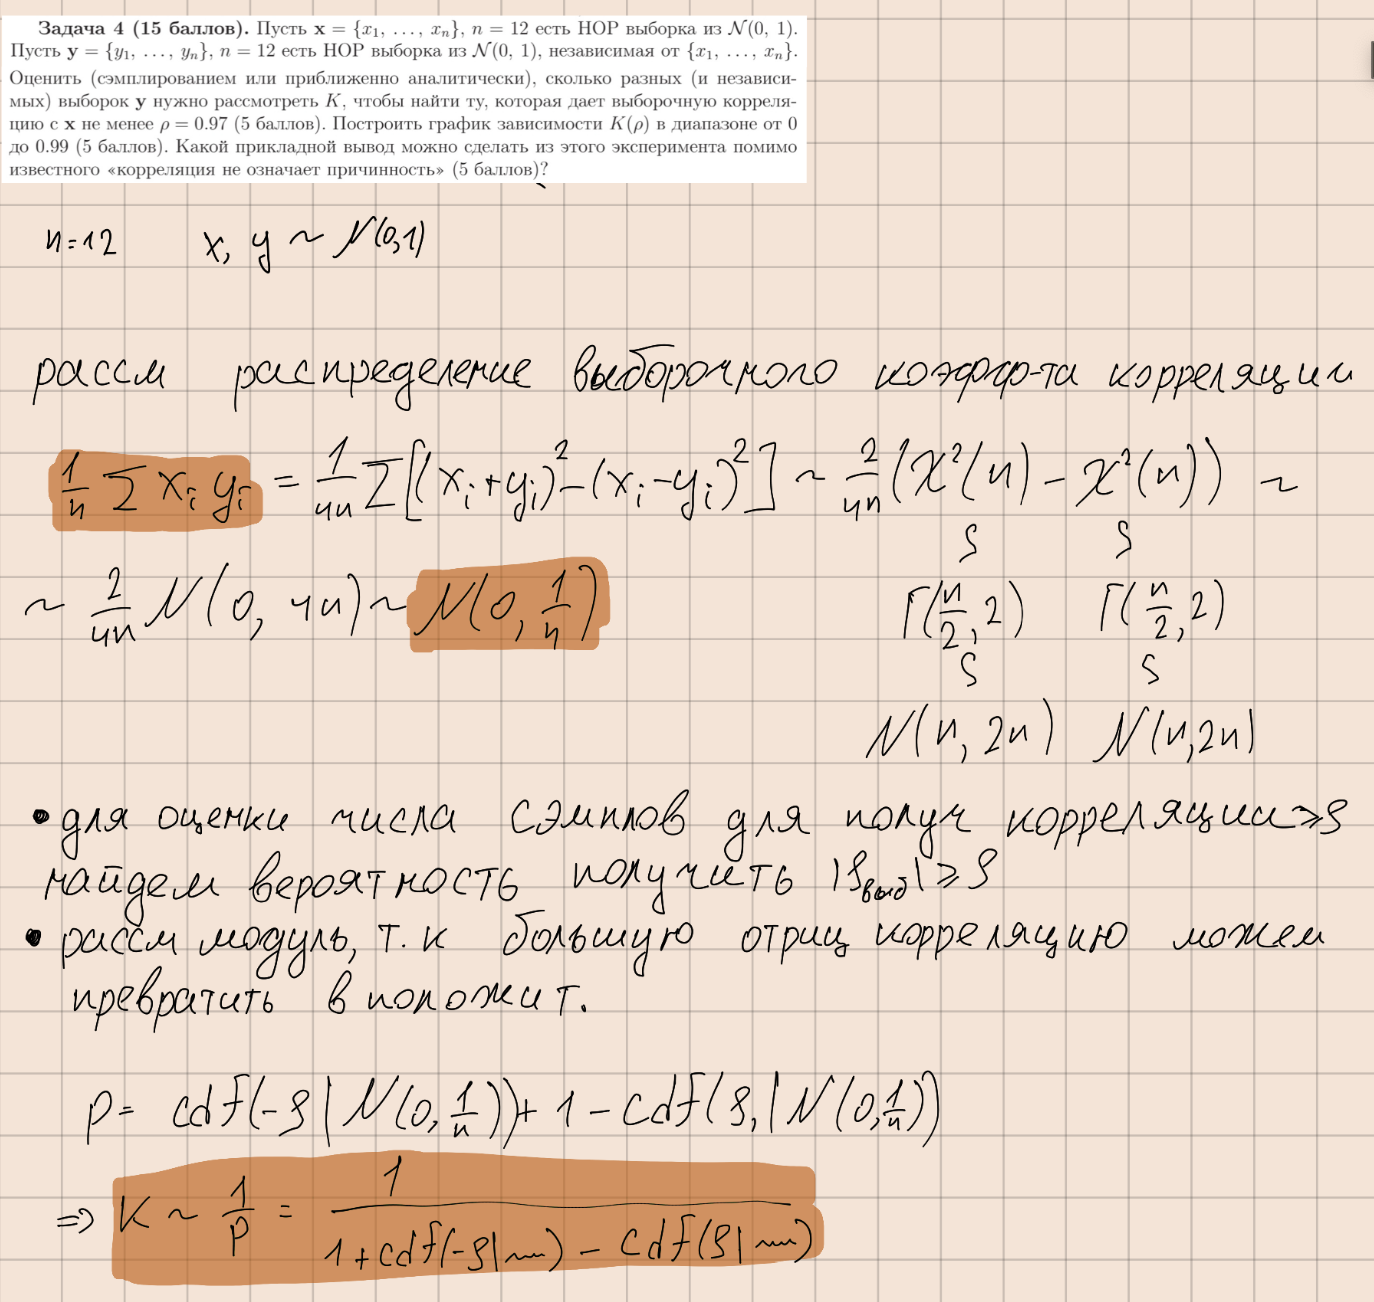 Задача 4 (15 баллов). Пусть x = {x₁, …, xₙ}, n = 12 есть НОР выборка из 𝒩(0, 1).
Пусть y = {y₁, …, yₙ}, n = 12 есть НОР выборка из 𝒩(0, 1), независимая от {x₁, …, xₙ}.
Оценить (сэмплированием или приближенно аналитически), сколько разных (и независи-
мых) выборок y нужно рассмотреть K, чтобы найти ту, которая дает выборочную корреля-
цию с x не менее ρ = 0.97 (5 баллов). Построить график зависимости K(ρ) в диапазоне от 0
до 0.99 (5 баллов). Какой прикладной вывод можно сделать из этого эксперимента помимо
известного «корреляция не означает причинность» (5 баллов)?
n=12 x, y ~ N(0,1)
рассм распределение выборочного коэфф-та корреляции
1/n Σ xᵢ yᵢ = 1/4n Σ[(xᵢ+yᵢ)² − (xᵢ−yᵢ)²] ~ 2/4n (χ²(n) − χ²(n)) ~
~ 2/4n N(0, 4n) ~ N(0, 1/n)
Γ(n/2, 2) Γ(n/2, 2)
N(n, 2n) N(n, 2n)
• для оценки числа сэмплов для получ корреляции ⩾ρ
найдем вероятность получить |ρвыб| ⩾ ρ
• рассм модуль, т.к большую отриц корреляцию можем
превратить в положит.
p = cdf(-ρ | N(0, 1/n)) + 1 − cdf(ρ, | N(0, 1/n))
⇒ K ~ 1/p = 1/(1 + cdf(-ρ | ~) − cdf(ρ | ~))